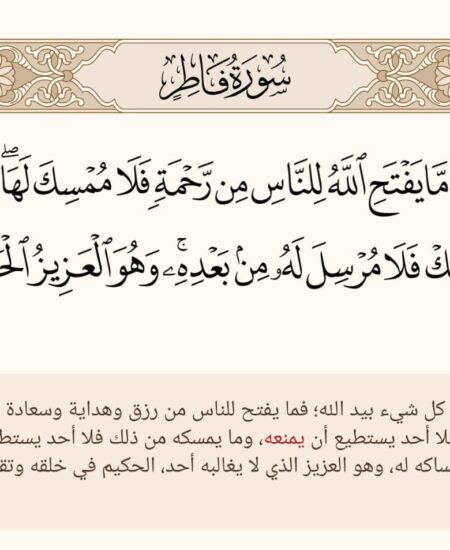 سُورَةُ فَاطِرٍ
مَّا يَفْتَحِ ٱللَّهُ لِلنَّاسِ مِن رَّحْمَةٍ فَلَا مُمْسِكَ لَهَا ۖ
فَلَا مُرْسِلَ لَهُۥ مِنۢ بَعْدِهِۦ ۚ وَهُوَ ٱلْعَزِيزُ
كل شيء بيد الله؛ فما يفتح للناس من رزق وهداية وسعادة
فلا أحد يستطيع أن يمنعه، وما يمسكه من ذلك فلا أحد
له، وهو العزيز الذي لا يغالبه أحد، الحكيم في خلقه